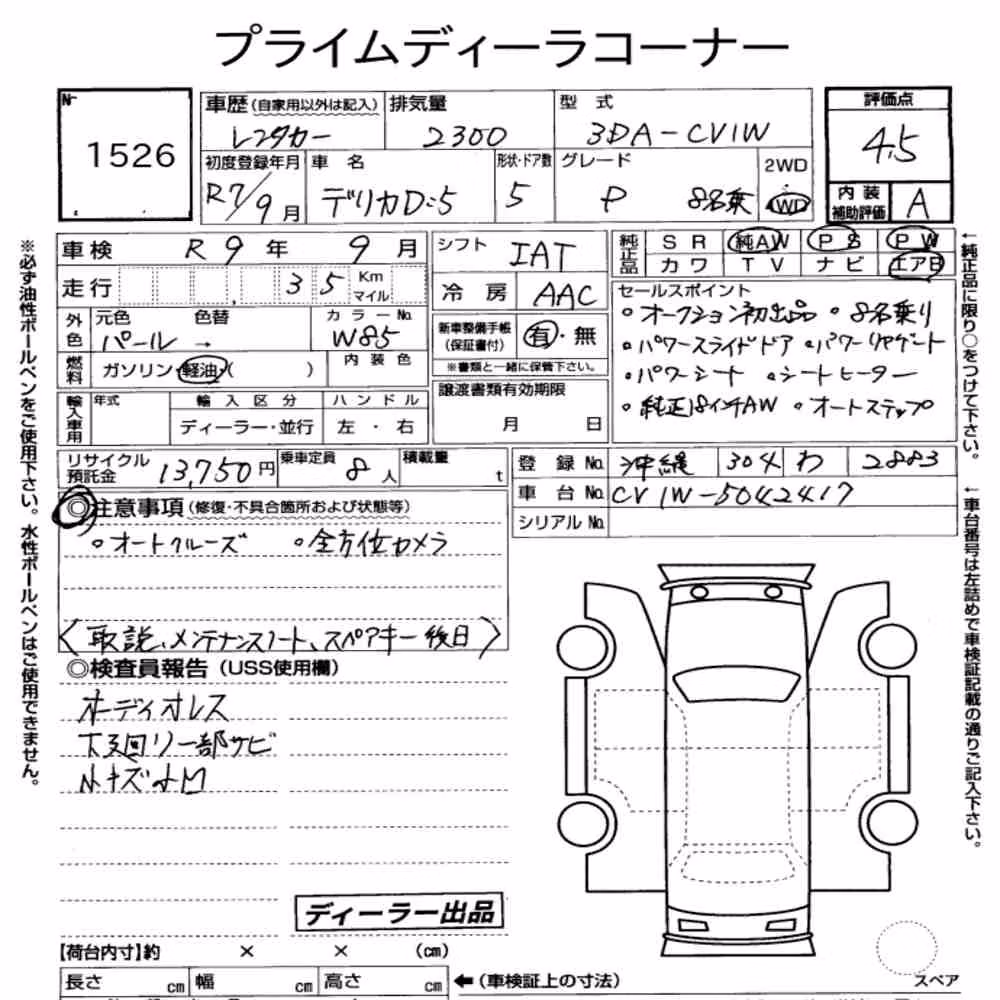 プライムディーラコーナー
№ 1526
車歴(自家用以外は記入) レンタカー
排気量 2300
型式 3DA-CV1W
評価点 4.5
初度登録年月 R7/9月
車名 デリカD:5
形状・ドア数 5
グレード P 8名乗
2WD 4WD
内装補助評価 A
車検 R9年 9月
シフト IAT
純正品 SR 純AW PS PW
カワ TV ナビ エアB
走行 35 Km マイル
冷房 AAC
セールスポイント
○オークション初出品 ○8名乗り
○パワースライドドア ○パワーリヤゲート
○パワーシート ○シートヒーター
○純正18インチAW ○オートステップ
外色 元色 パール → 色替
カラーNo. W85
新車整備手帳(保証書付) 有・無
※書類と一緒に保管下さい。
燃料 ガソリン・軽油・( )
内装色
譲渡書類有効期限
月 日
輸入車用 年式 輸入区分 ハンドル
ディーラー・並行 左・右
リサイクル預託金 13,750円
乗車定員 8人
積載量 t
登録No. 沖縄 304 わ 2883
車台No. CV1W-5042417
シリアルNo.
◎注意事項(修復・不具合箇所および状態等)
○オートクルーズ ○全方位カメラ
〈取説、メンテナンスノート、スペアキー後日〉
◎検査員報告(USS使用欄)
オーディオレス
下廻り一部サビ
小キズ小凹
ディーラー出品
【荷台内寸】約 × × (cm)
長さ cm 幅 cm 高さ cm
←(車検証上の寸法)
スペア
※必ず油性ボールペンをご使用下さい。水性ボールペンはご使用できません。
←純正品に限り○をつけて下さい。
←車台番号は左詰めで車検証記載の通りご記入下さい。